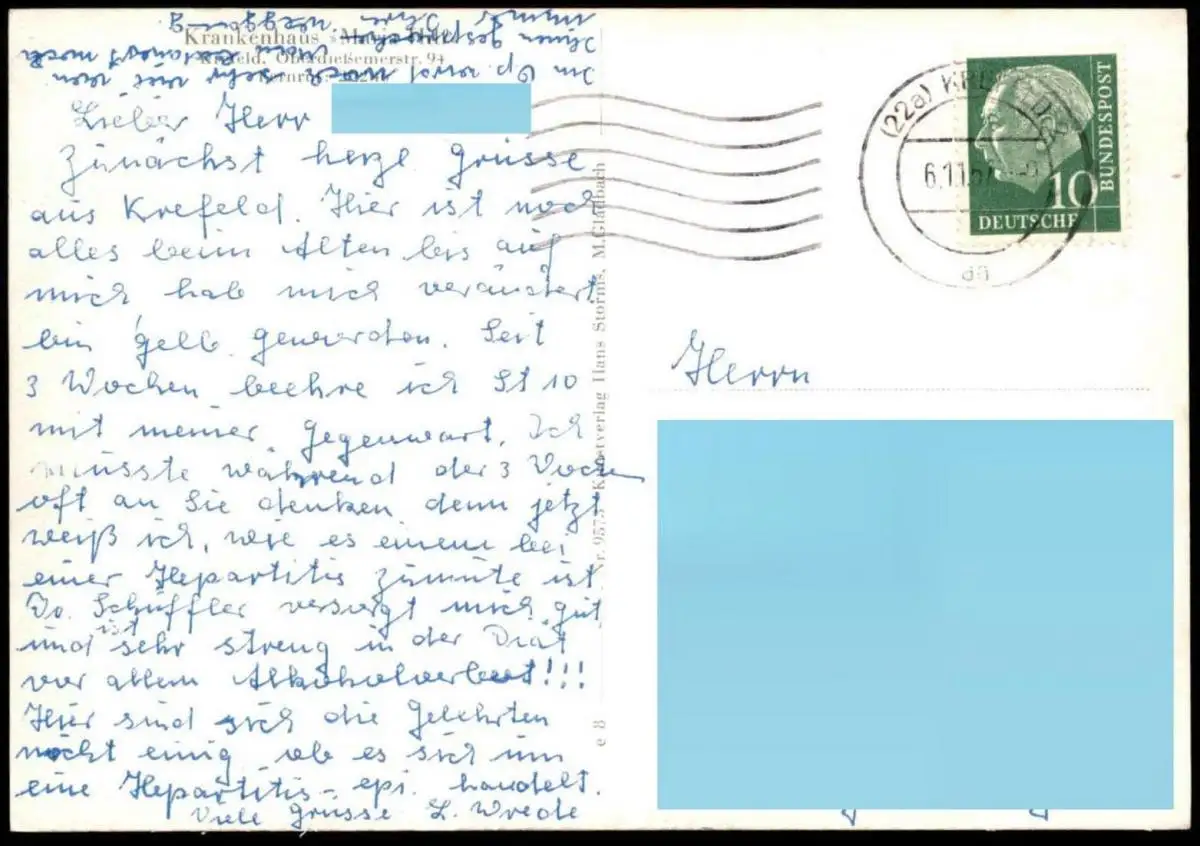 Krankenhaus
Krefeld, Oberdießemerstr. 94
Lieber Herr
Zunächst herze Grüsse
aus Krefeld. Hier ist noch
alles beim Alten bis auf
mich hab mich verändert
bin gelb geworden. Seit
3 Wochen beehre ich St 10
mit meiner Gegenwart. Ich
musste während der 3 Wochen
oft an Sie denken denn jetzt
weiß ich, wie es einem bei
einer Hepartitis zumute ist
Dr. Schüffler versorgt mich gut
und ist sehr streng in der Diät
vor allem Alkoholverbot!!!
Hier sind sich die Gelehrten
nicht einig ob es sich um
eine Hepartitis-epi. handelt.
Viele Grüsse L. Wrede
Im Op. wird noch sehr viel von
Ihnen gesprochen
immer Ihre
e 8 Nr. 9575 Kunstverlag Hans Storms, M.Gladbach
(22a) KREFELD
6.11.57
aa
10
DEUTSCHE
BUNDESPOST
Herrn